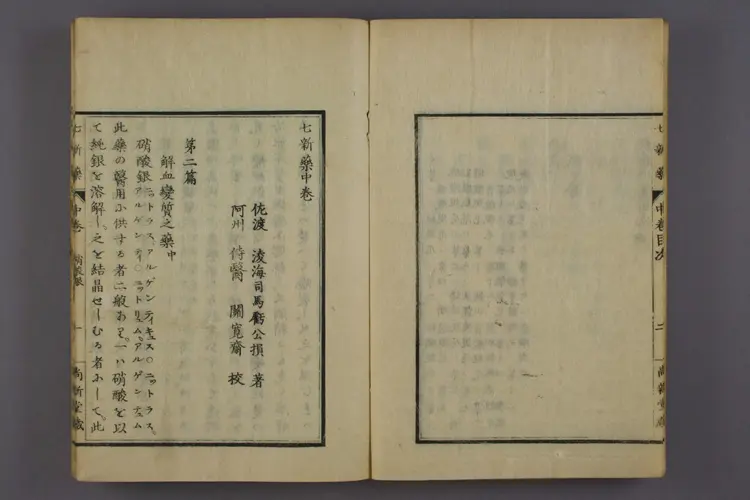 七新藥
中卷目次
二
尚新堂藏
七新藥中卷
佐渡 淩海司馬虧公損 著
阿州 侍醫 關寬齋 校
第二篇
解血變質之藥中
硝酸銀 ニットラス、アルゲンティキュス○ニットラス、アルゲンティ○ニットリュム、アルゲンテュム
此藥の醫用に供する者二般あり一ハ硝酸を以
て純銀を溶解し之を結晶せしむる者にして此
七新藥
中卷
硝酸銀
一
尚新堂藏